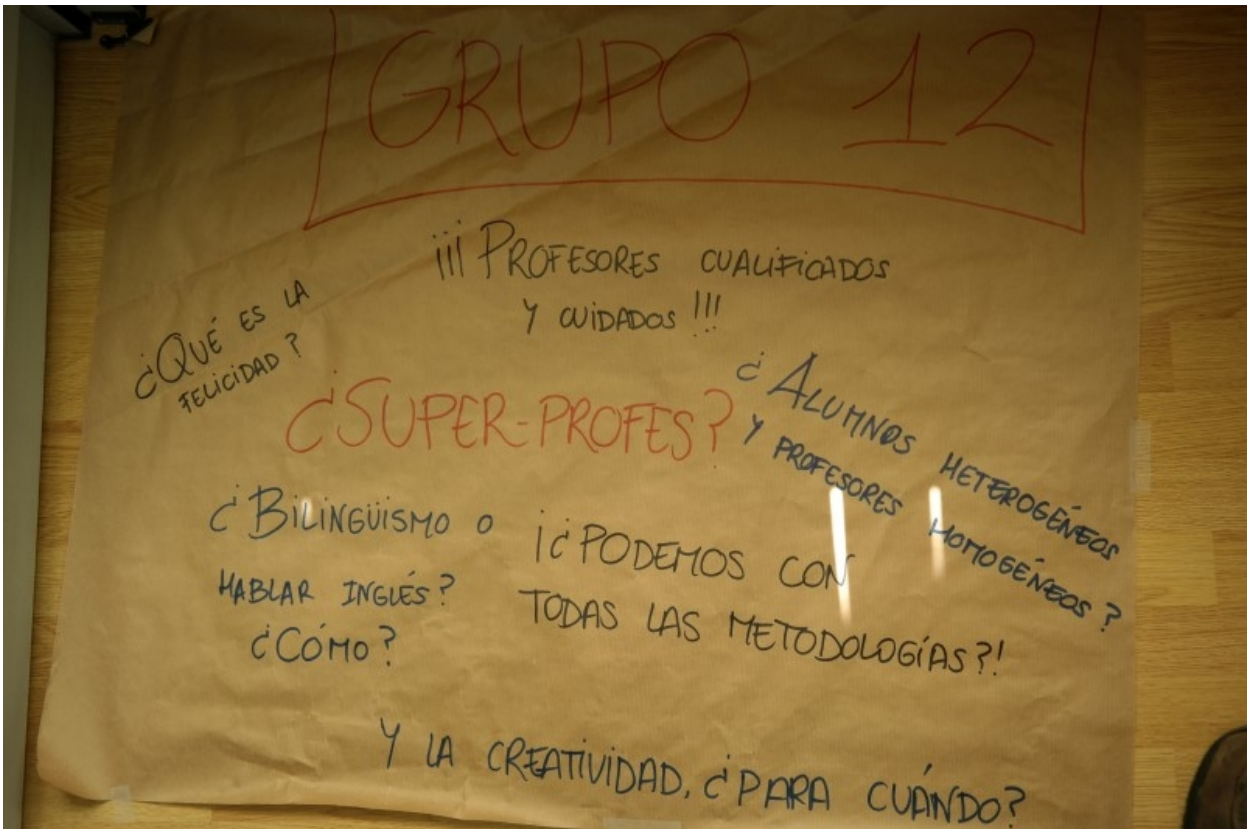 GRUPO 12
¡¡¡PROFESORES CUALIFICADOS
Y CUIDADOS!!!
¿QUÉ ES LA
FELICIDAD?
¿SUPER-PROFES?
¿ALUMNOS HETEROGÉNEOS
Y PROFESORES HOMOGÉNEOS?
¿BILINGÜISMO O
HABLAR INGLÉS?
¿CÓMO?
¡¿PODEMOS CON
TODAS LAS METODOLOGÍAS?!
Y LA CREATIVIDAD, ¿PARA CUÁNDO?